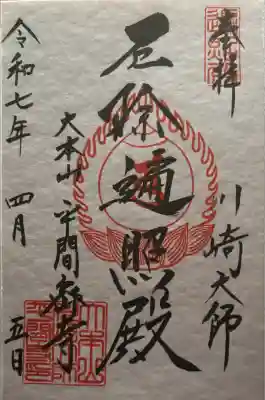 奉拝
川崎大師
厄除遍照殿
大本山平間寺
令和七年四月五日